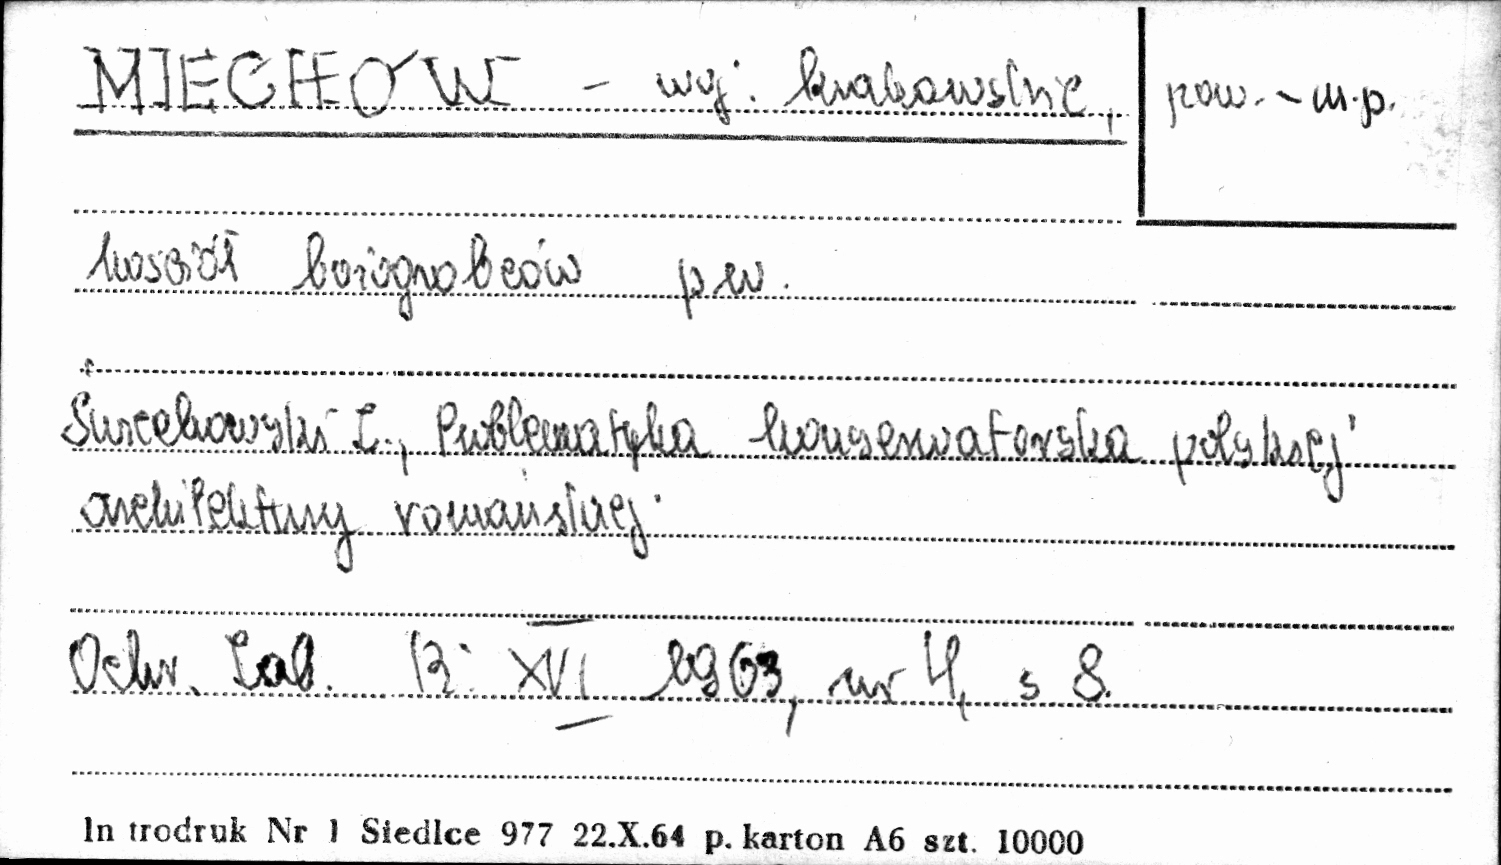 MIECHÓW - woj. krakowskie,
pow. - m.p.
kościół bożogrobców pw.
Świechowski Z., Problematyka konserwatorska polskiej
architektury romańskiej
Ochr. Zab. R: XVI 1963, nr 4, s 8.
In trodruk Nr 1 Siedlce 977 22.X.64 p. karton A6 szt. 10000